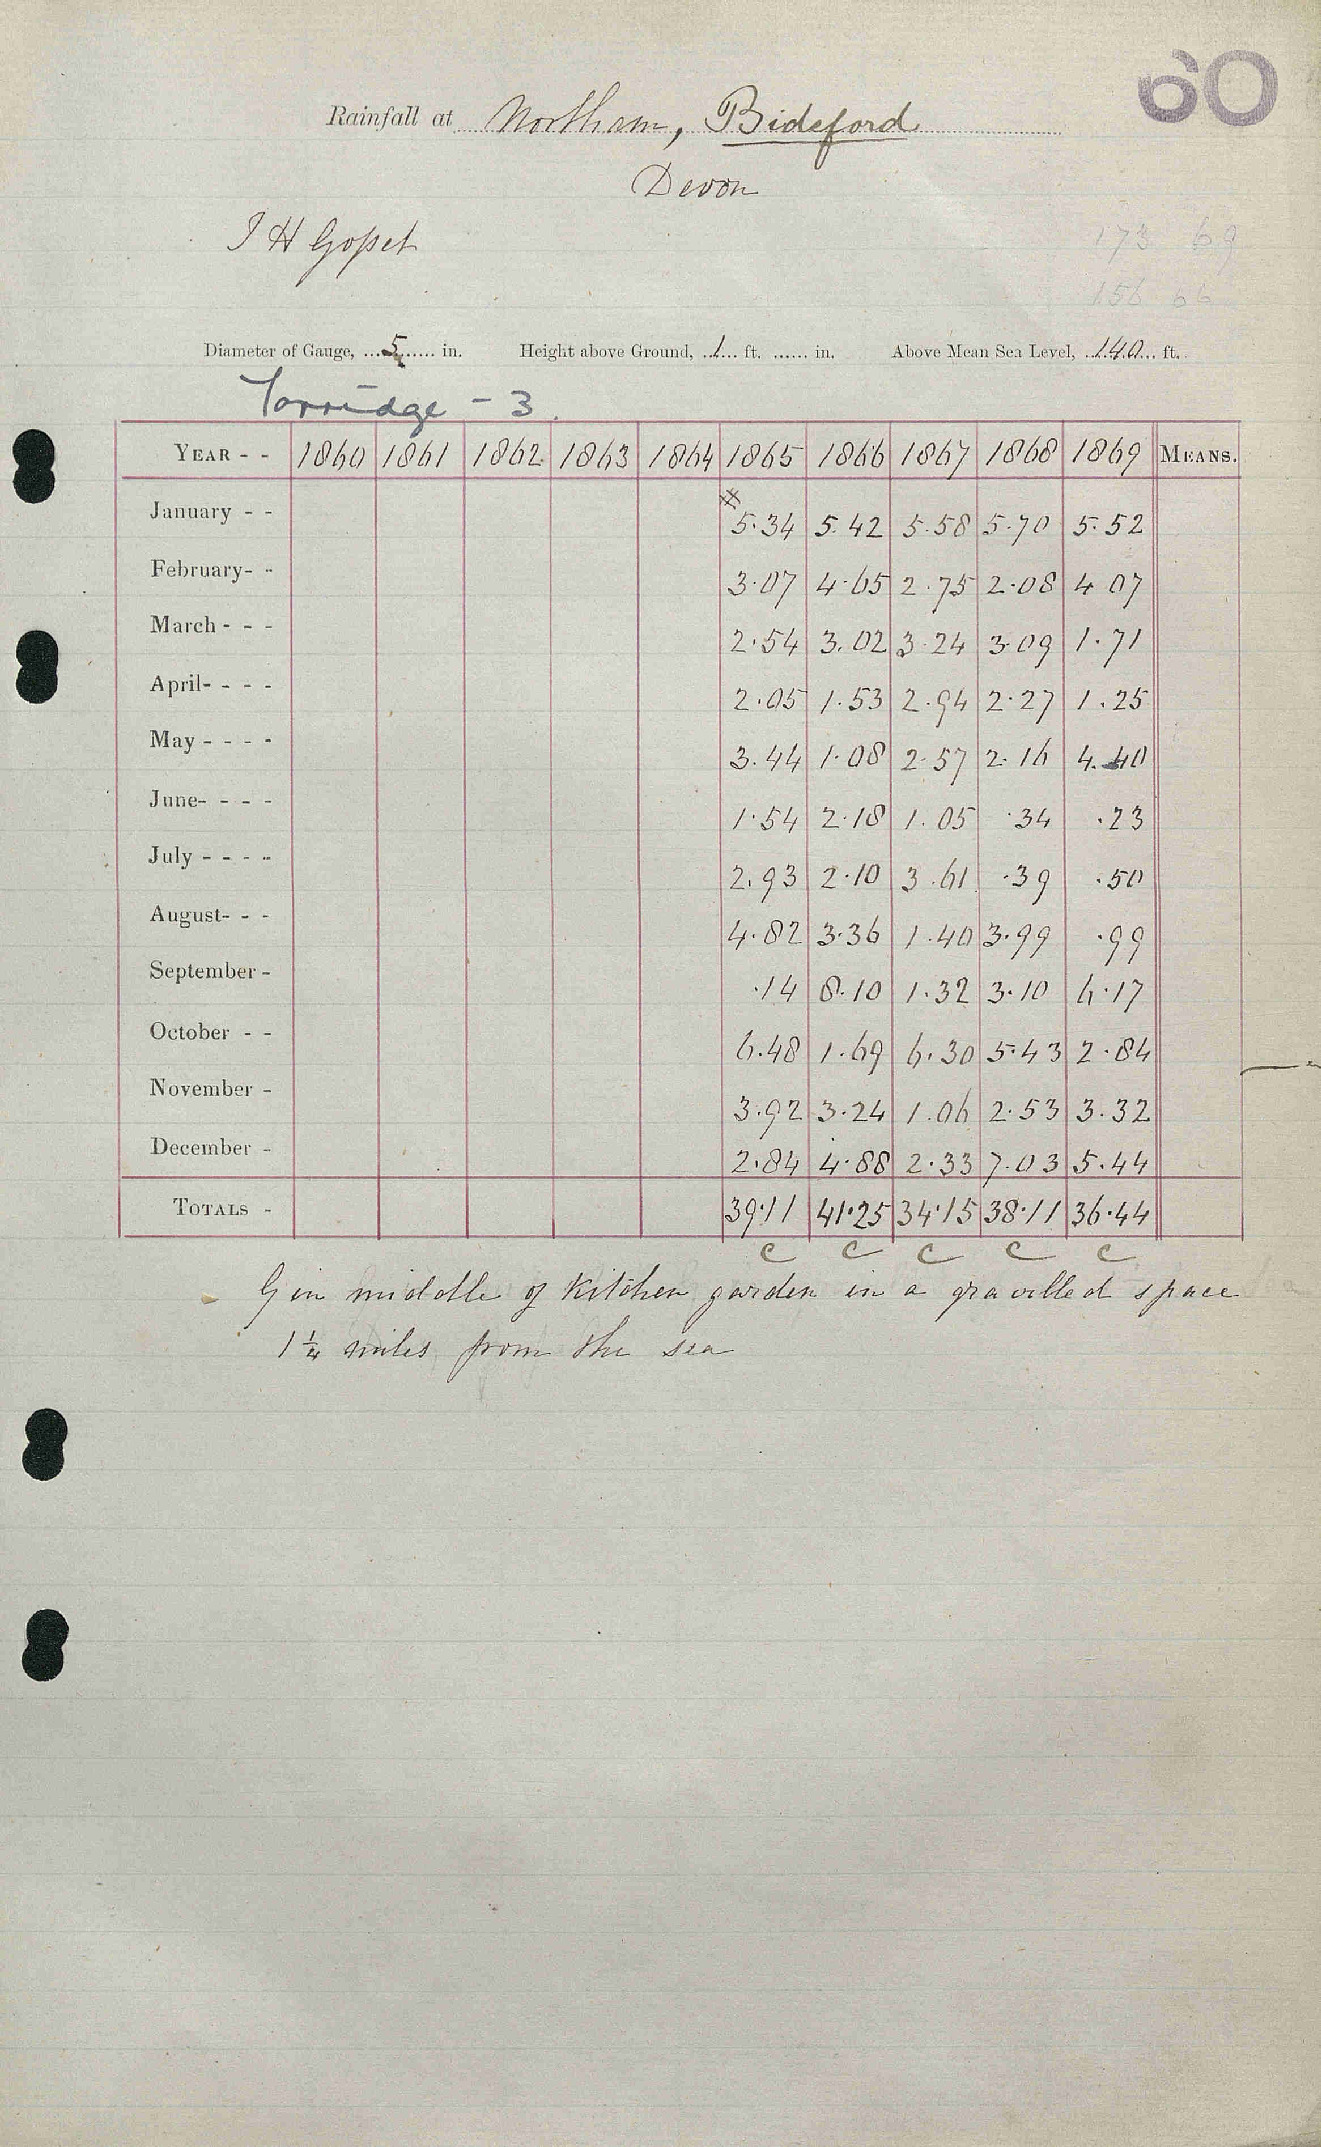 60
Rainfall at Northam, Bideford
Devon
I H Goſset
173 69
156 66
Diameter of Gauge, 5 in. Height above Ground, 1 ft. in. Above Mean Sea Level, 140 ft.
Torridge - 3.
YEAR - - 1860 1861 1862 1863 1864 1865 1866 1867 1868 1869 MEANS.
January - - 5.34 5.42 5.58 5.70 5.52
February - - 3.07 4.65 2.75 2.08 4 07
March - - - 2.54 3.02 3.24 3.09 1.71
April - - - - 2.05 1.53 2.94 2.27 1.25
May - - - - 3.44 1.08 2.57 2.16 4.40
June - - - - 1.54 2.18 1.05 .34 .23
July - - - - 2.93 2.10 3.61 .39 .50
August - - - 4.82 3.36 1.40 3.99 .99
September - .14 8.10 1.32 3.10 6.17
October - - 6.48 1.69 6.30 5.43 2.84
November - 3.92 3.24 1.06 2.53 3.32
December - 2.84 4.88 2.33 7.03 5.44
TOTALS - 39.11 41.25 34.15 38.11 36.44
c c c c c
G in middle of kitchen garden in a gravelled space
1¼ miles from the sea